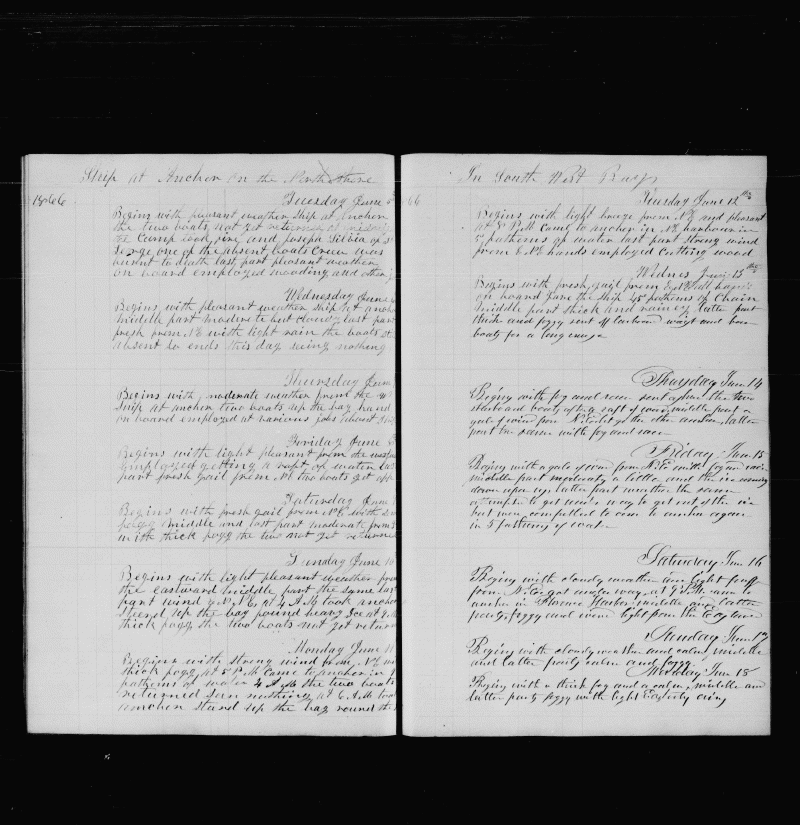 Ship at Anchor on the North Shore
1866
Tuesday June 5
Begins with pleasant weather ship at anchor
the two boats not yet returned
and Joseph Silvia of St
George one of the absent boats crew was
last part pleasant weather
on board employed wooding and other j
Wednesday June
Begins with pleasant weather ship at ancho
middle part modira te but cloudy last part
fresh from NE with light rain the boats st
absent so ends this day seing nothing
Thursday June
Begins with moderate weather from the
Ship at anchor two boats up the bay hand
on board employed at various jobs
Friday June
Begins with light pleasant from the
Employed getting a raft of water las
part fresh gail from NE two boats got off
Saturday June
Begins with fresh gail from NE with
foggy middle and last part moderate from
with thick fogg the two not yet returned
Sunday June 10
Begins with light pleasant weather from
the eastward middle part the same last
part wind at 4 A M took anchor
stand up the bay found heavy Ice at
thick fogg the two boats not yet return
Monday June 11
Begins with strong wind from NE wi
thick fogg at 5 P M Came to anchor in
fathems of water 4 A M the two boats
returned san nothing at 6 A M took
anchor stand up the bay round the
In South West Bay
66
Tuesday June 12th
Begins with light breeze from NE and pleasant
at 8 P M Came to anchor in NE harbour in
5 fathems of water last part strong wind
from ENE hands employed Cutting wood
Wednes June 13th
Begins with fresh gail from ENE all hands
on board gave the ship 45 fathems of Chain
middle part thick and rainey latter part
thick and foggy sent off larbord waist and bow
boats for a long cruse
Thursday June 14
Begins with fog and rain sent ashore the two
starboard boats after a raft of wood middle part a
gale of wind from N E let go the other anchor, latter
part the same with fog and rain
Friday June 15
Begins with a gale of wind from N.E. with fog and rain
middle part moderates a little and the ice coming
down upon us, latter part weather the same
attempted to get under way to get out of the ice
but were compelled to come to anchor again
in 5 fathoms of water
Saturday June 16
Begins with cloudy weather and light puffs
from N.E. got under way, at 9 P.M. came to
anchor in Florence Harbor middle and latter
parts foggy and wind light from the Eastward
Sunday June 17
Begins with cloudy weather and calm, middle
and latter parts calm and foggy.
Monday June 18
Begins with a thick fog and a calm, middle and
latter parts foggy with light Easterly airs